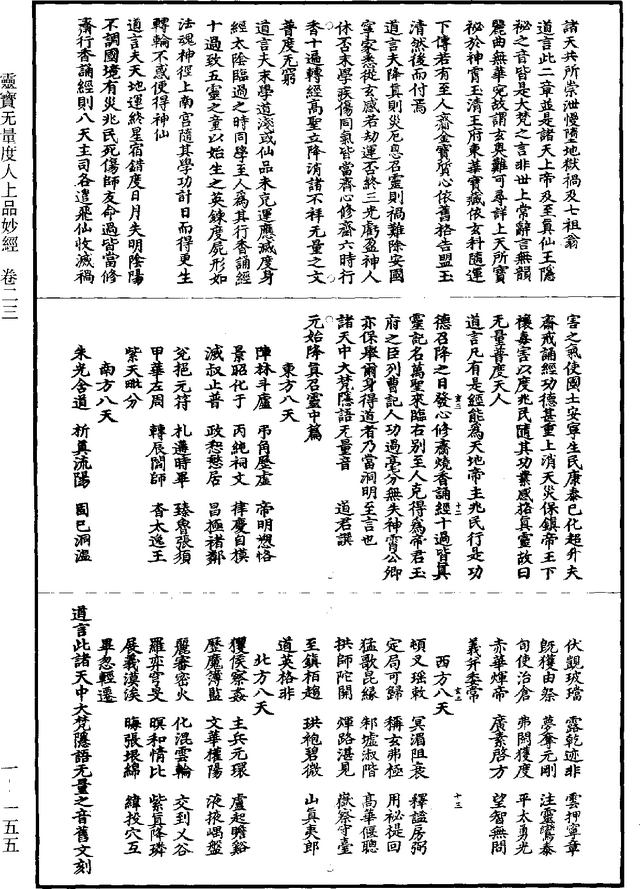 諸天共所崇泄慢墮地獄禍及七祖翁
道言此二章並是諸天上帝及至真仙王隱
祕之音皆是大梵之言非世上常辭言無韻
麗曲無華宛故謂玄奧難可尋詳上天所寶
祕於神霄玉清王府東華寶藏依玄科隨運
下傳若有至人齎金寶質心依舊格告盟玉
清然後而付焉
道言夫降真則災厄息召靈則禍難除安國
寧家悉從玄感若劫運否終三光虧盈神人
休否末學疾傷同氣皆當齋心修齋六時行
香十過轉經高聖立降消諸不祥无量之文
普度无窮
道言夫末學道淺或仙品未充運應滅度身
經太陰臨過之時同學至人為其行香誦經
十過致五靈之童以始生之英鍊度屍形如
法魂神徑上南宮隨其學功計日而得更生
轉輪不惑便得神仙
道言夫天地運終星宿錯度日月失明陰陽
不調國境有災兆民死傷師友命過皆當修
齋行香誦經則八天主司各遣飛仙收滅禍
靈寶无量度人上品妙經 卷二三
害之氣使國土安寧生民康泰已化超升夫
齋戒誦經功德甚重上消天災保鎮帝王下
禳毒害以度兆民隨其功業感格真靈故曰
无量普度天人
道言凡有是經能為天地帝主兆民行是功
德召降之日發心修齋燒香誦經十過皆真
靈記名萬聖來臨右別至人克得為帝君玉
府之臣列曹記人功過毫分無失神霄公卿
亦保舉爾身得道者乃當洞明至言也
諸天中大梵隱語无量音 道君譔
元始降真召靈中篇
東方八天
陣林斗盧 弔角歷虛 帝明愬恪
景昭化于 丙純祠文 律慶自模
滅叔止普 政愁愁居 昌極褚鄰
兊挹元符 札遘時畢 臻魯張須
甲華左周 轉辰閻師 杳太逸王
紫天毗分
南方八天
朱光含道 祈真流陽 固巳洞溫
伏觀玻璫 露乾迹非 雲押寧章
旣獲由祭 夢奪元剛 注靈鸞泰
旬使治倉 弗閉獲度 平太勇光
赤華煇帝 廣素啓方 望智無問
義弁委常
西方八天
頓叉瑶敕 冥湄阻衰 釋謐房弼
定局可歸 稱玄弗極 用祕提回
猛歌昆緣 邾墟淑階 高華偃聰
拱師陀開 煇路湛見 嶽祭守臺
至鎮栢趨 珙袍碧微 山真夷郎
道英格非
北方八天
玃侯察姦 主兵元環 盧起瞻谿
歷魔簿監 文華權陽 液掖嵎盤
麗審密火 化混雲輪 交到乂谷
羅弈穹旻 暝和情比 紫真降璘
展義漠渙 晦張垠綿 緯投穴互
畢忽輕遷
道言此諸天中大梵隱語无量之音舊文刻
一－一五五